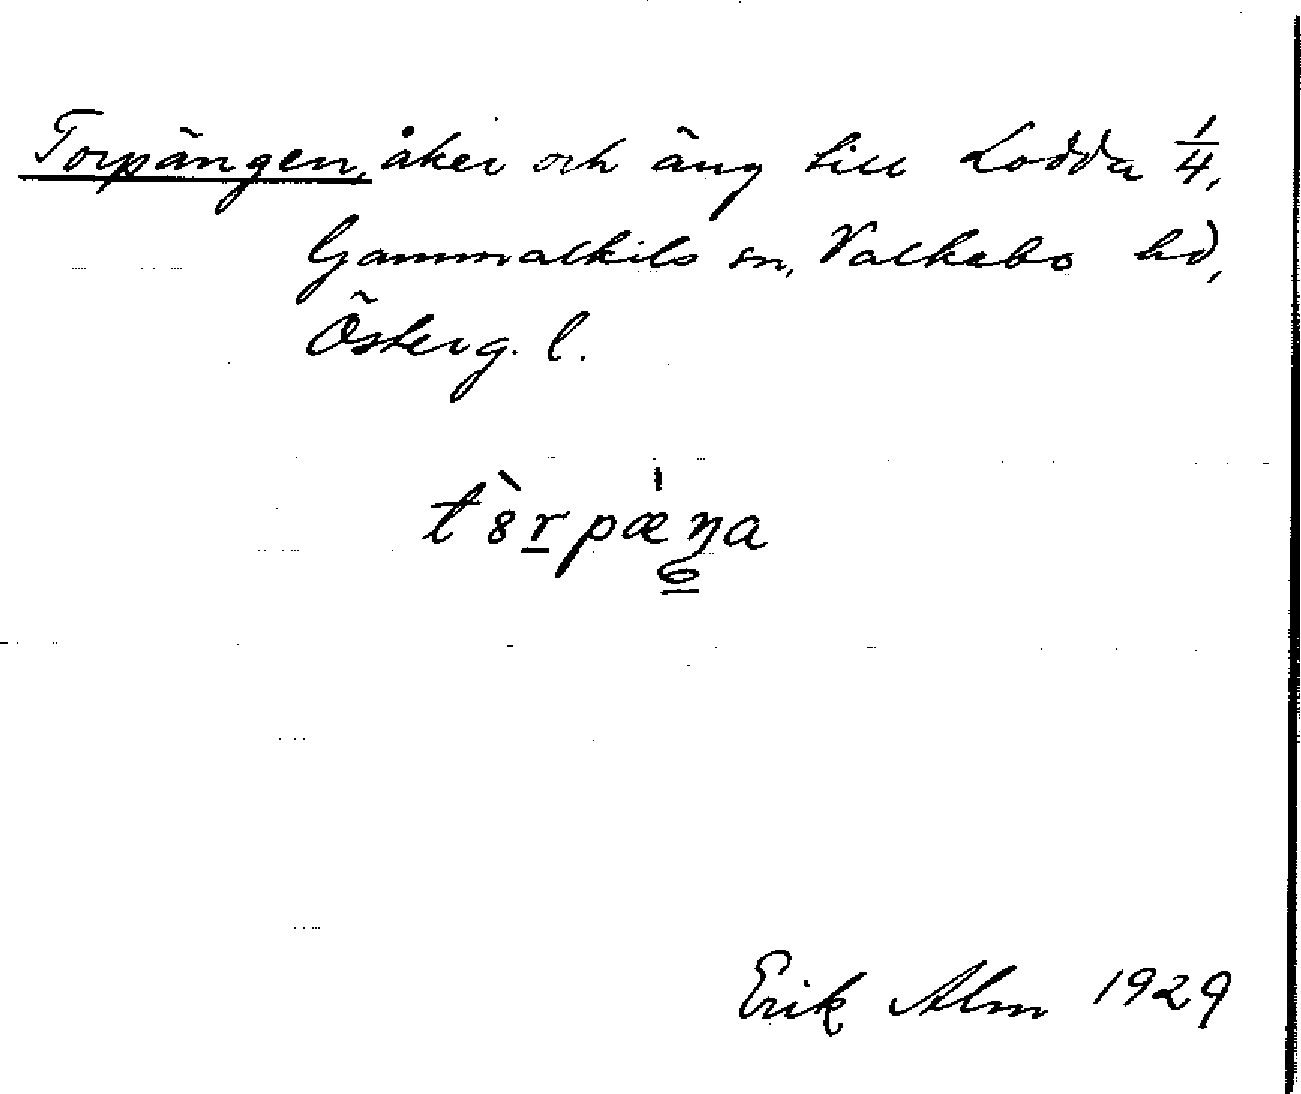 Torpängen, åker och äng till Lodda 1/4,
Gammalkils sn, Valkebo hd,
Österg. l.
tòrpæ̍ŋa
Erik Alm 1929